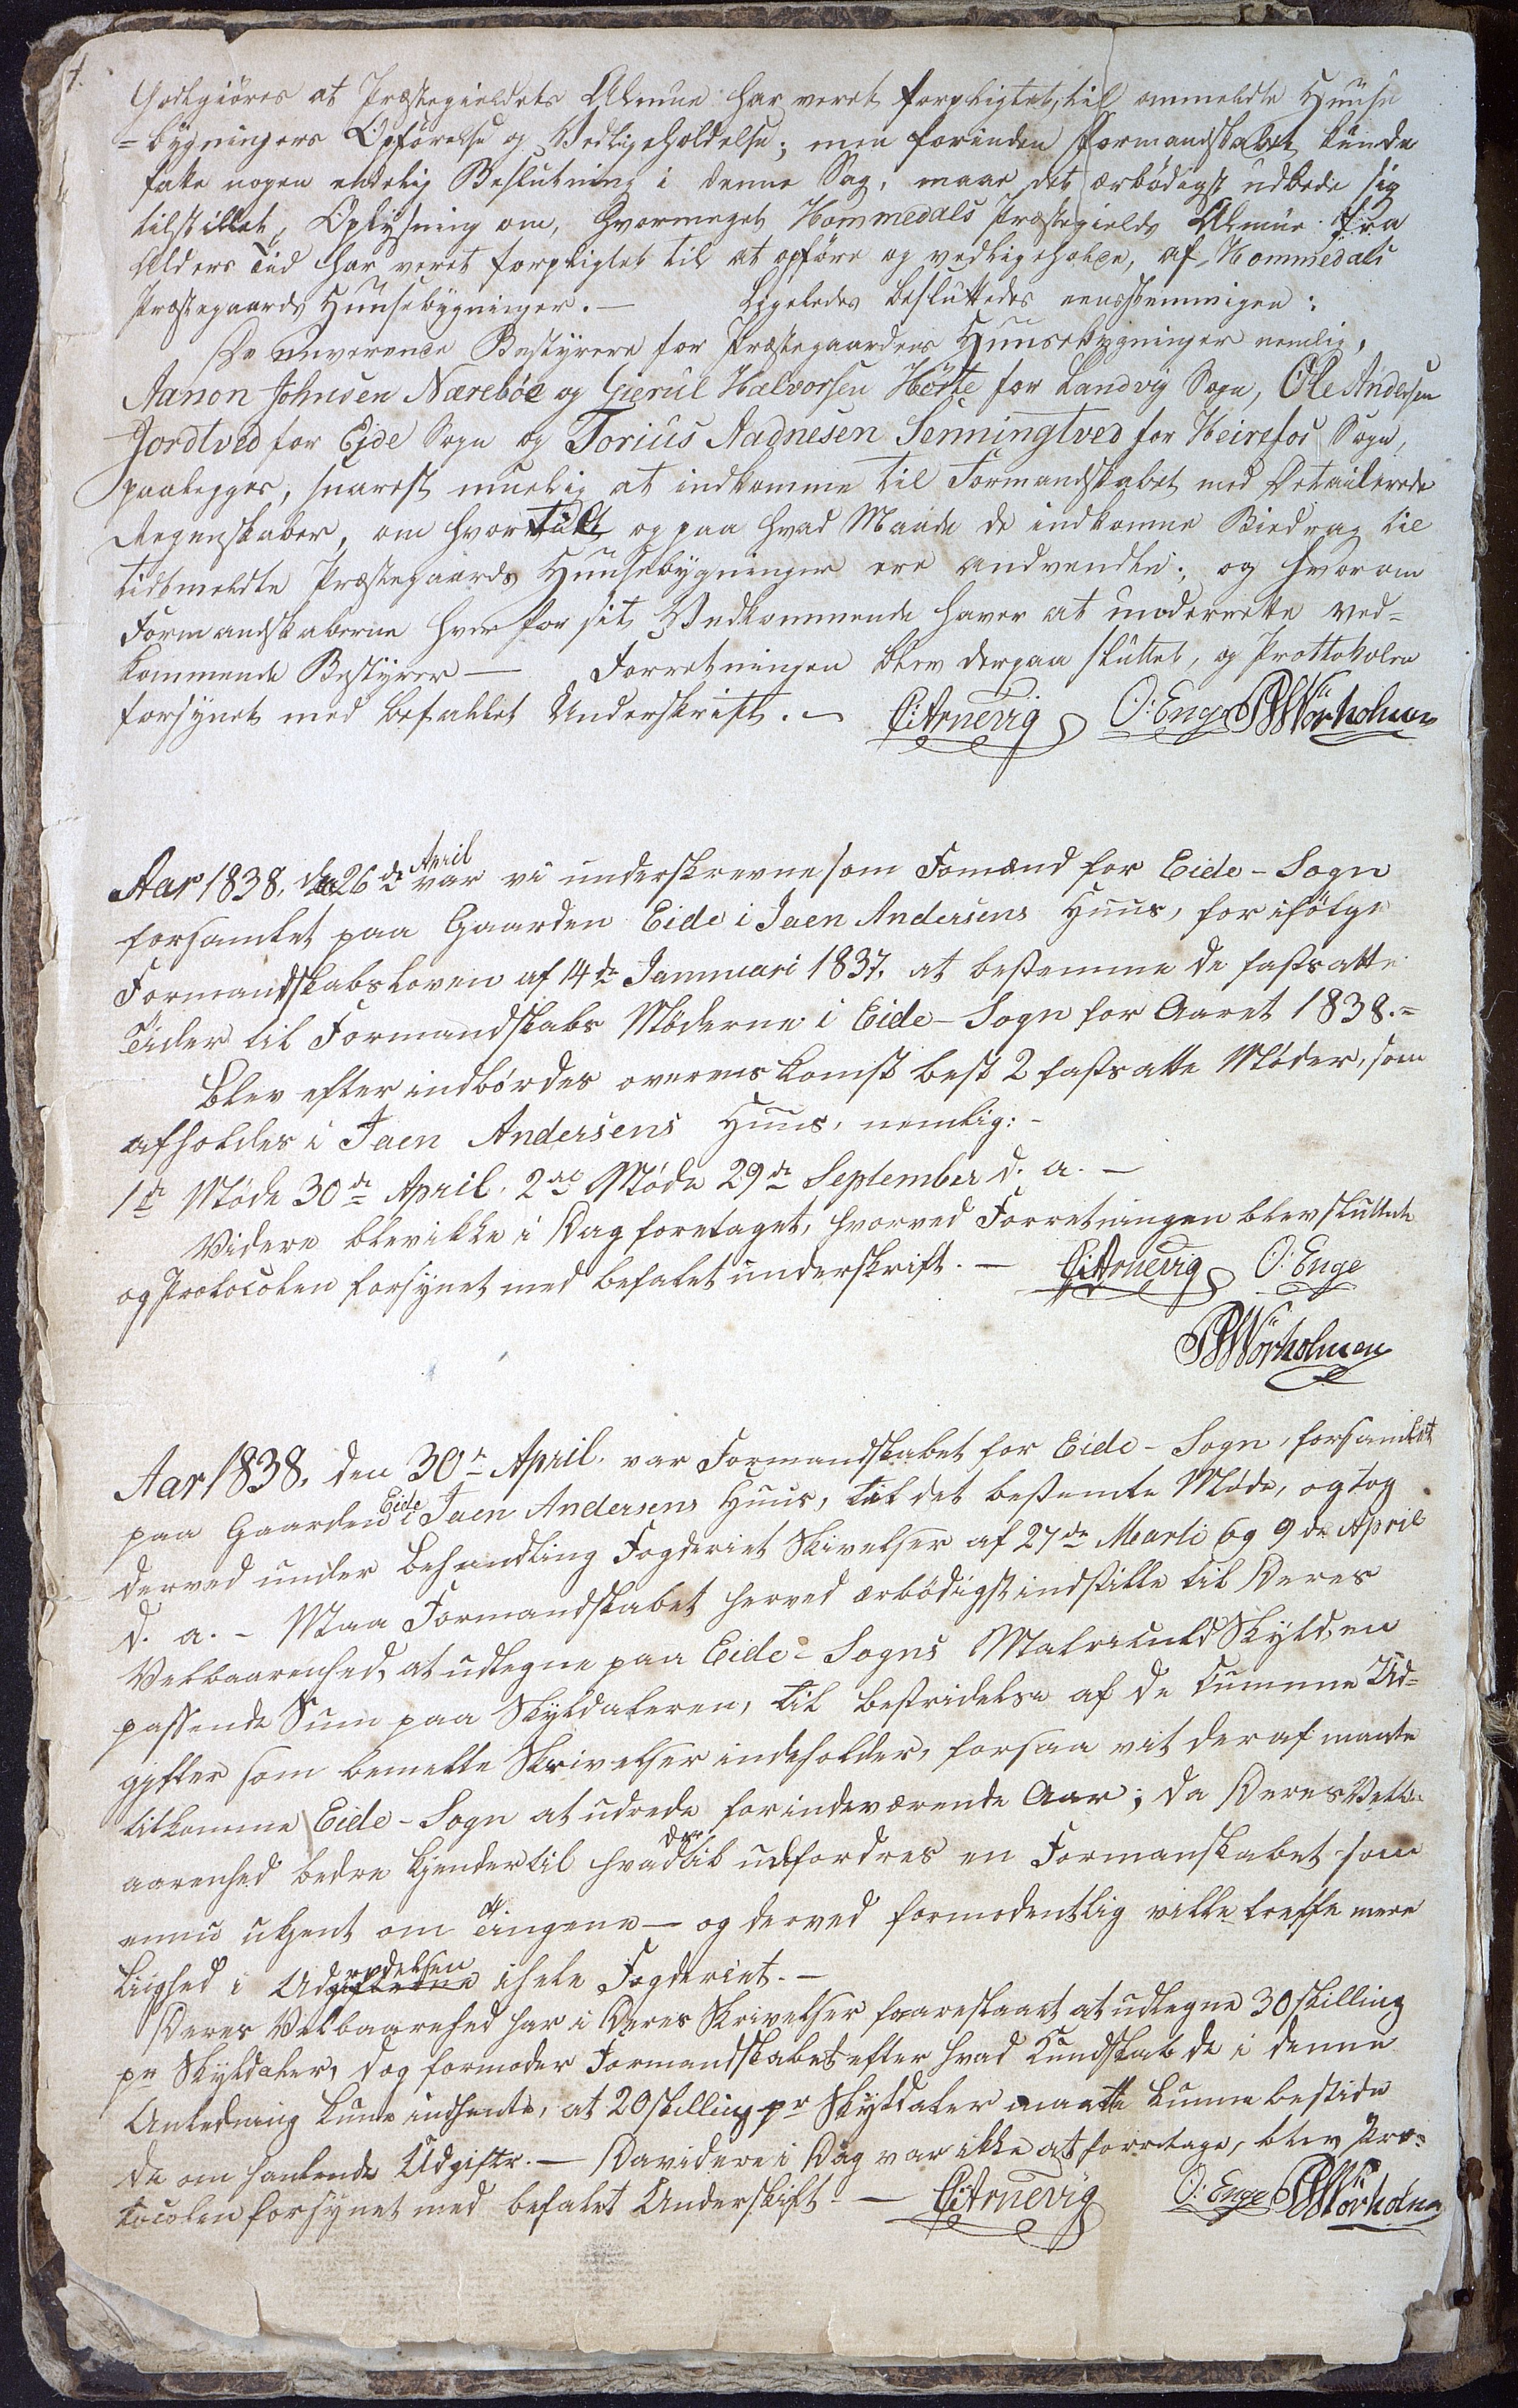 Godtgiöres at Præstegieldets Almue har veret forpligtet, til ommeldte Huuse
=bygningers Opförelse og Vedligeholdelse; men forinden Formandskabet kunde
fatte nogen endelig Beslutning i denne Sag, maae det ærbödigst udbede sig
tilstillet, Oplysning om, hvormeget Hommedals Præstegields Almue fra
Alders Tid har veret forpligtet til at opföre og vedligeholde, af Hommedals
Præstegaards Huusebygninger. — Ligeledes besluttedes eensstemmigen:
De nuverende Bestyrere for Præstegaardens Huusebygninger nemlig,
Aanon Johnsen Næreböe og Gierul Halvorsen Hörte for Landvig Sogn, Ole Andersen
Jordtved for Eide Sogn og Torius Aadnesen Senningtved for Heirefos Sogn,
paalegges, snarest muelig at indkomme til Formandskabet med Detailerede
Regnskaber, om hvortill og paa hvad Maade de indkomne Bidrag til
tidtmeldte Præstegaards Huusebygninger ere andvendte; og hvorom
Formandskaberne hver for sit Vedkommende haver at underrette ved=
kommende Bestyrer — Forretningen blev derpaa sluttet, og Prottokolen
forsynet med befallet Underskrift. — C: Arnevig O: Enge PWörholmen
Aar 1838, den 26de April var vi underskrevne som Fomænd for Eide-Sogn
forsamlet paa Gaarden Eide i Jaen Andersens Huus, for ifölge
Formandskabsloven af 14de Jannuari 1837, at bestemme de fastsatte
Tider til Formandskabs Möderne i Eide-Sogn for Aaret 1838.=
Blev efter indbördes overens komst best 2 fastsatte Möder, som
afholdes i Jaen Andersens Huus, nemlig:-
1de Möde 30de April. 2de Möde 29de September d. a. —
Videre blev ikke i Dag foretaget, hvorved Forretningen blev sluttet
og Protocolen forsynet med befalet underskrift. — C: Arnevig O: Enge
PWörholmen
Aar 1838, den 30te April. var Formandskabet for Eide-Sogn, forsamlet
paa Gaarden Eide i Jaen Andersens Huus, til det bestemte Möde, og tog
derved under Behandling Fogderiet Skivelser af 27de Marti og 9de April
d. a. - Maa Formandskabet herved ærbödigst indstille til Deres
Velbaarenhed, at udlegne paa Eide-Sogns Matriculd Skyld, en
passende Sum paa Skyldaleren, til bestridelse af de summe Ud=
gifter som bemelte Skrivelser indeholder, forsaa vit deraf maate
tilkomme Eide-Sogn at udrede for indeværende Aar; da Deres Velb
aarenhed bedre kjender til hvad der til udfordres en Formanskabet som
ennu ukjent om Tingene — og derved formodentlig ville treffe mere
Liighed i Udgifterne redelsen i hele Fogderiet. —
Deres Velbaarehed har i Deres Skrivelser foareslaaet at udlegne 30 skilling
pr Skyldaler, dog formoder Formandskabet efter hvad Kundskab de i denne
Anledning kune indhente, at 20 skilling pr Skyldaler maatte kunne bestide
de om hanlende Udgiftr. — Da videre i Dag var ikke at forretage, blev Pro=
tocolen forsynet med befalet Underskift — C: Arnevig O: Enge PWörholmen